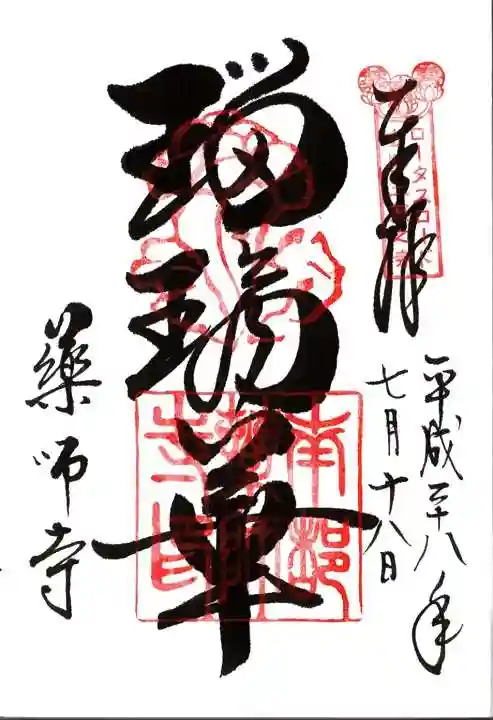 奉拝
平成二十八年
七月十八日
瑠璃華
藥師寺